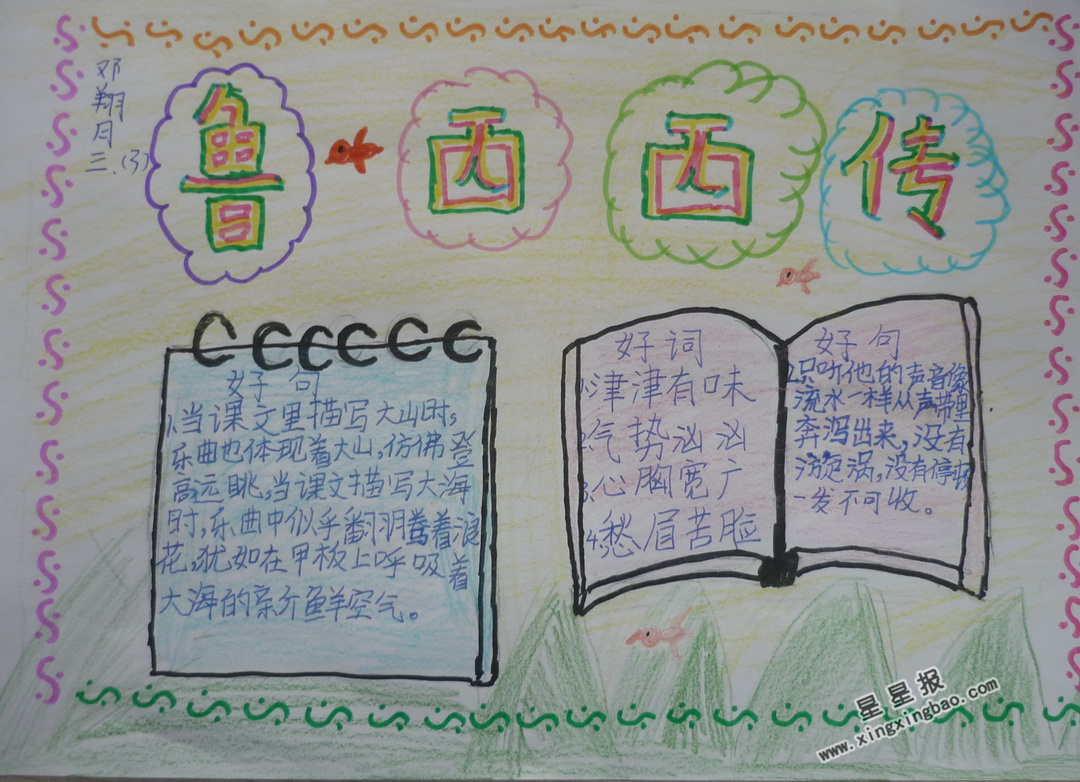 邓翔月
三.(3)
鲁西西传
好句
1.当课文里描写大山时,
乐曲也体现着大山,仿佛登
高远眺,当课文描写大海
时,乐曲中似乎翻羽着浪
花,犹如在甲板上呼吸着
大海的新鲜空气。
好词
1.津津有味
2.气势汹汹
3.心胸宽广
4.愁眉苦脸
好句
2.只听他的声音像
流水一样从声带里
奔泻出来,没有
漩涡,没有停顿
一发不可收。
星星报
www.xingxingbao.com